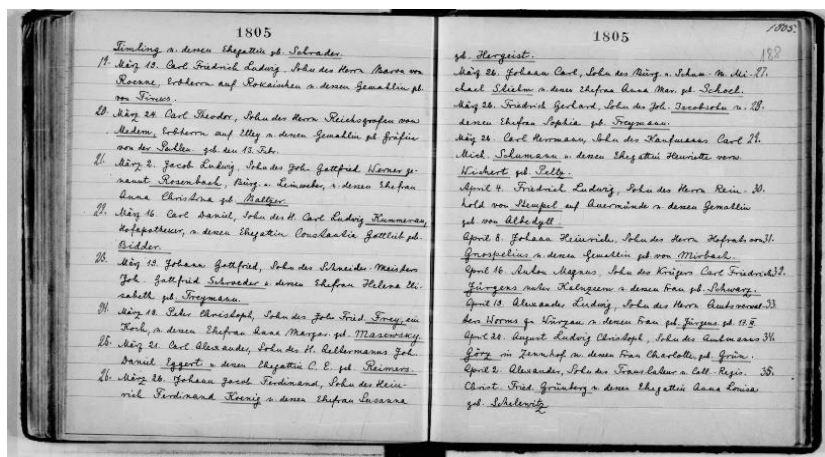 1805
Timling u. dessen Ehegattin geb. Schrader.
19. März 19. Carl Friedrich Ludwig, Sohn des Herrn Baron von
Roenne, Erbherrn auf Rokaischen u. dessen Gemahlin geb.
von
20. März 24. Carl Theodor, Sohn des Herrn Reichsgrafen von
Medem, Erbherrn auf Elley u. dessen Gemahlin geb. Gräfin
von der Pahlen. geb. den 13. Febr.
21. März 2. Jacob Ludwig, Sohn des Joh. Gottfried Werner ge-
nannt Rosenbach, Bürg. u. Leinweber, u. dessen Ehefrau
Anna Christina geb. Baltzer.
22. März 16. Carl Daniel, Sohn des H. Carl Ludwig Kummerau,
Hofapotheker, u. dessen Ehegattin Constantia Gottlieb geb.
Bidder.
23. März 19. Johann Gottfried, Sohn des Schneider-Meisters
Joh. Gottfried Schroeder u. dessen Ehefrau Helena Eli-
sabeth geb. Freymann.
24. März 18. Peter Christoph, Sohn des Joh. Fried. Frey, ein
Koch, u. dessen Ehefrau Anna Margar. geb. Masewsky.
25. März 21. Carl Alexander, Sohn des H. Aeltermanns Joh.
Daniel Eggert u. dessen Ehegattin C. E. geb. Reimers.
26. März 26. Johann Jacob Ferdinand, Sohn des Hein-
rich Ferdinand Koenig u. dessen Ehefrau Susanna
1805.
1805
188
geb. Hergeist.
März 26. Johann Carl, Sohn des Bürg. u. Schum. M. Mi- 27.
chael Stiehm u. dessen Ehefrau Anna Mar. geb. Schoch.
März 26. Friedrich Gerhard, Sohn des Joh. Jacobsohn u. 28.
dessen Ehefrau Sophia geb. Freymann.
März 26. Carl Herrmann, Sohn des Kaufmanns Carl 29.
Mich. Schumann u. dessen Ehegattin Henriette verw.
Wickert geb. Peltz.
April 4. Friedrich Ludwig, Sohn des Herrn Rein- 30.
hold von Stempel auf Auermünde u. dessen Gemahlin
geb. von Albedyll.
April 8. Johann Heinrich, Sohn des Herrn Hofrath von 31.
Gnospelius u. dessen Gemahlin geb. von Mirbach.
April 16. Anton Magnus, Sohn des Krügers Carl Friedrich 32.
Jürgens unter Kalnzeem u. dessen Frau geb. Schwarz.
April 19. Alexander Ludwig, Sohn des Herrn Amtsverwal- 33.
ters Worms zu Würzau u. dessen Frau geb. Jürgens geb. 17. II
April 20. August Ludwig Christoph, Sohn des Amtmanns 34.
Götz in Zennhof u. dessen Frau Charlotte, geb. Grün.
April 2. Alexander, Sohn des Translateur u. Coll.-Regis. 35.
Christ. Fried. Grünberg u. dessen Ehegattin Anna Louisa
geb. Schelewitz